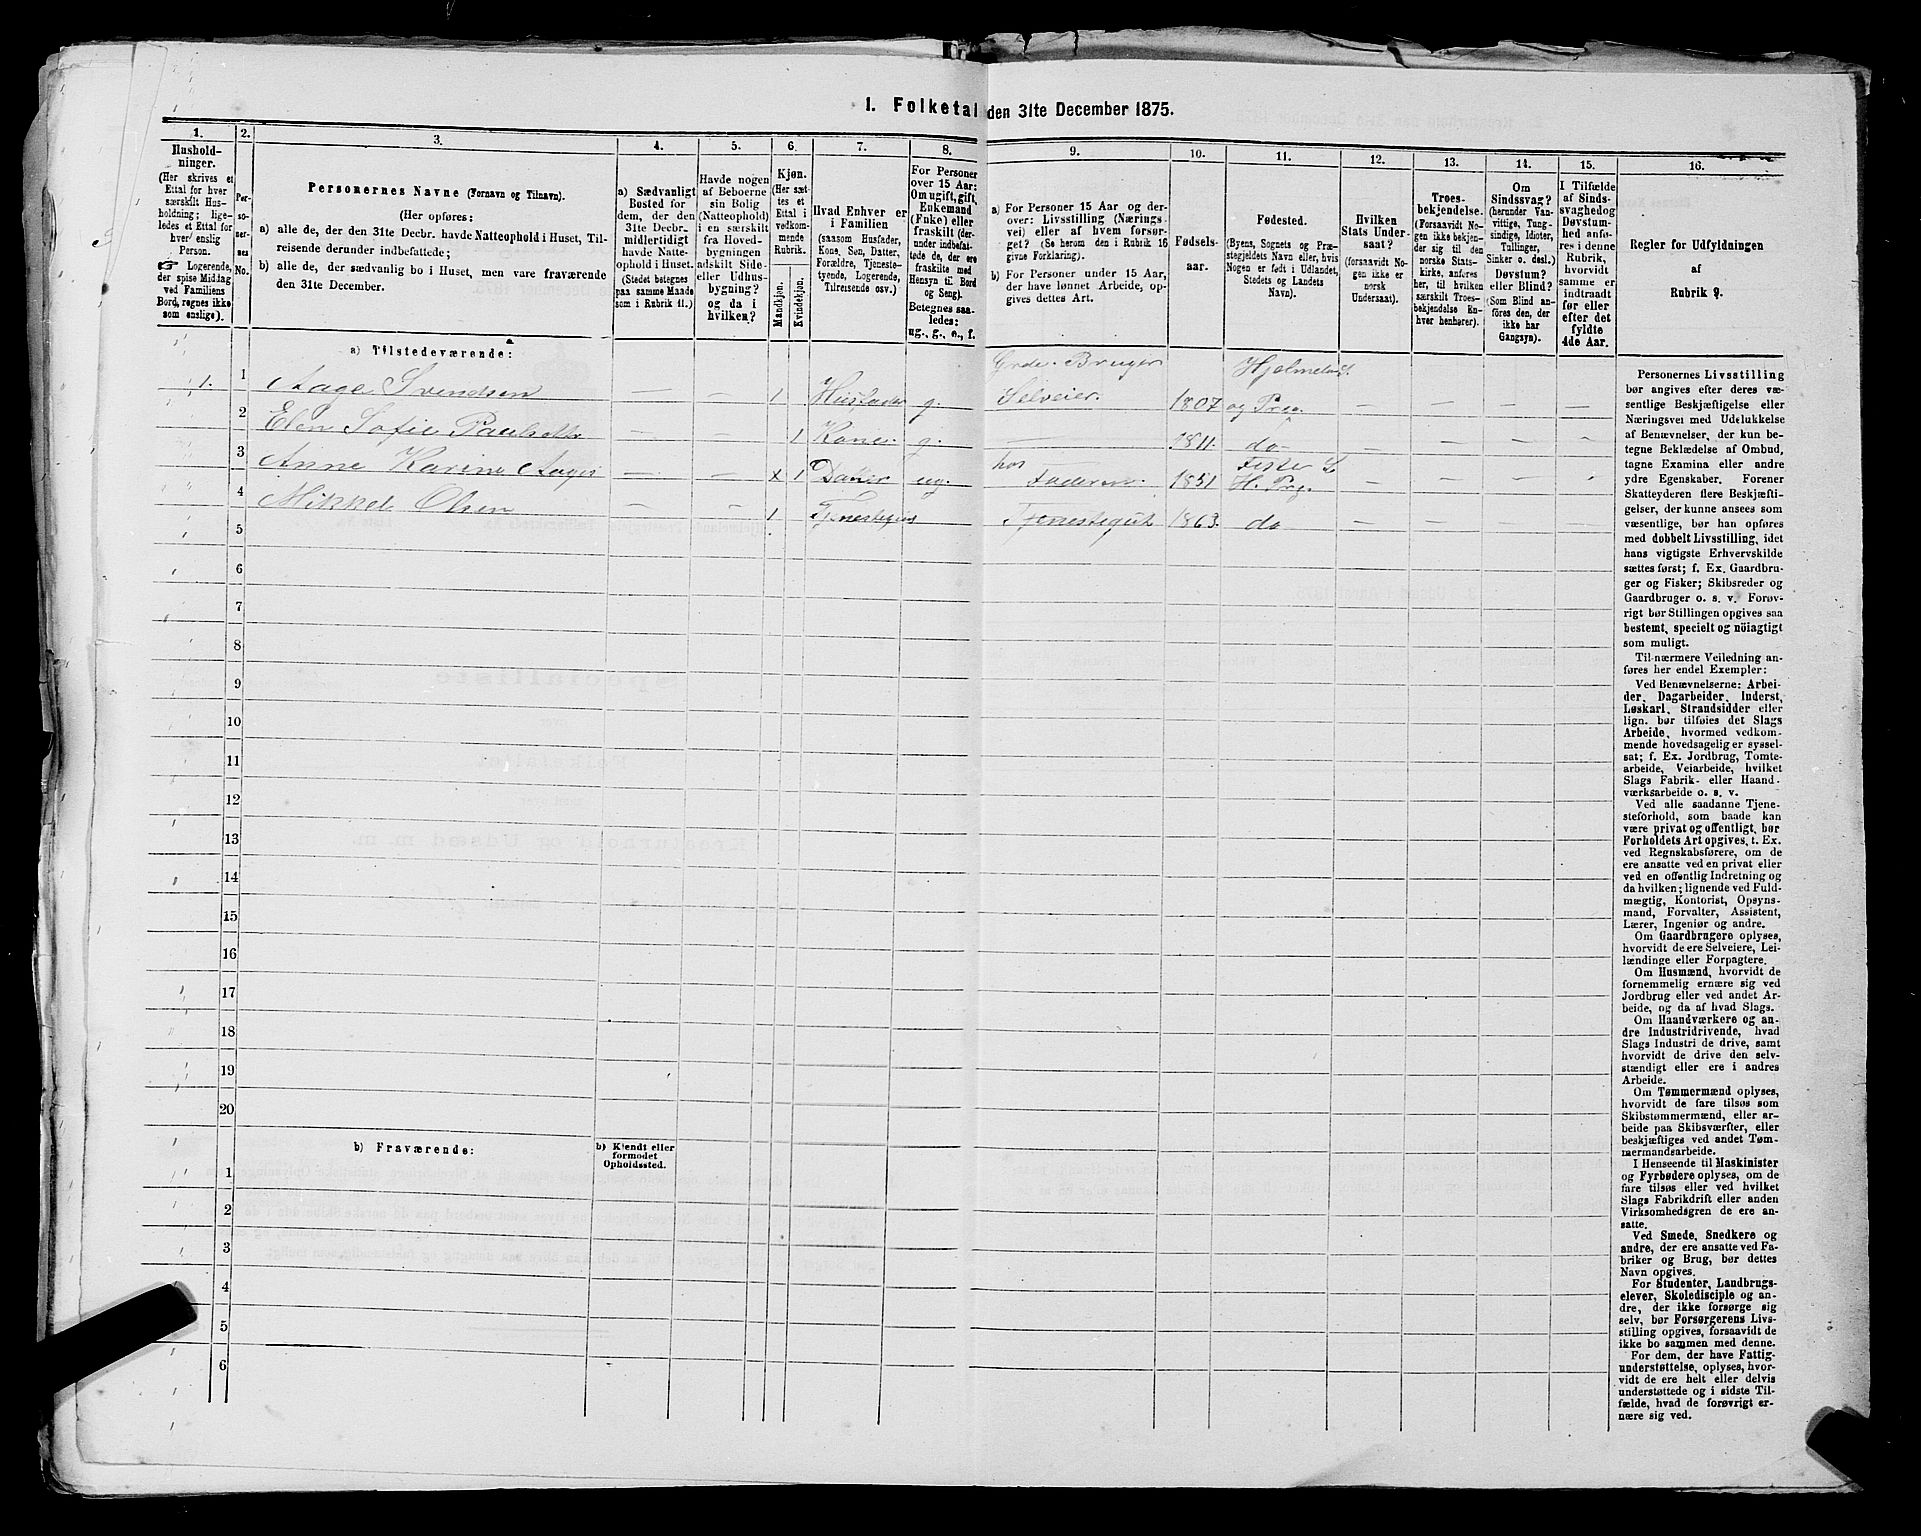 1. Folketal den 31te December 1875.
1. 2. 3. 4. 5. 6. 7. 8. 9. 10. 11. 12. 13. 14. 15. 16.
Hushold-
ninger.
(Her skrives et
Ettal for hver
særskilt Hus-
holdning; lige-
ledes et Ettal for
hver enslig
Person.
☞ Logerende,
der spise Middag
ved Familiens
Bord, regnes ikke
som enslige).
Per-
so-
ner-
nes
No.
Personernes Navne (Fornavn og Tilnavn).
(Her opføres:
a) alle de, der den 31te Decbr. havde Natteophold i Huset, Til-
reisende derunder indbefattede;
b) alle de, der sædvanlig bo i Huset, men vare fraværende
den 31te December.
a) Sædvanligt
Bosted for
dem, der den
31te Decbr.
midlertidigt
havde Natte-
ophold i Huset.
(Stedet betegnes
paa samme Maade
som i Rubrik 11.)
Havde nogen
af Beboerne
sin Bolig
(Natteophold)
i en særskilt
fra Hoved-
bygningen
adskilt Side-
eller Udhus-
bygning?
og da i
hvilken?
Kjøn.
(Her sæt-
tes et
Ettal i
vedkom-
mende
Rubrik.
Mandkjøn.
Kvindekjøn.
Hvad Enhver er
i Familien
(saasom Husfader,
Kone, Søn, Datter,
Forældre, Tjeneste-
tyende, Logerende,
Tilreisende osv.)
For Personer
over 15 Aar:
Om ugift, gift,
Enkemand
(Enke) eller
fraskilt (der-
under indbefat-
tede de, der ere
fraskilte med
Hensyn til Bord
og Seng).
Betegnes saa-
ledes:
ug., g., e., f.
a) For Personer 15 Aar og der-
over: Livsstilling (Nærings-
vei) eller af hvem forsør-
get? (Se herom den i Rubrik 16
givne Forklaring).
b) For Personer under 15 Aar,
der have lønnet Arbeide, op-
gives dettes Art.
Fødsels-
aar.
Fødested.
(Byens, Sognets og Præ-
stegjeldets Navn eller, hvis
Nogen er født i Udlandet,
Stedets og Landets
Navn).
Hvilken
Stats Under-
saat?
(forsaavidt No-
gen ikke er
norsk
Undersaat).
Troes-
bekjendelse.
(Forsaavidt No-
gen ikke bekjen-
der sig til den
norske Stats-
kirke, anføres
her, til hvilken
særskilt Troes-
bekjendelse En-
hver henhører).
Om
Sindssvag?
(herunder Van-
vittige, Tung-
sindige, Idioter,
Tullinger,
Sinker o. desl.)
Døvstum?
eller Blind?
(Som Blind an-
føres den, der
ikke har
Gangsyn).
I Tilfælde
af Sinds-
svaghed og
Døvstum-
hed anfø-
res i denne
Rubrik,
hvorvidt
samme er
indtraadt
før eller
efter det
fyldte
4de Aar.
Regler for Udfyldningen
af
Rubrik 9.
a) Tilstedeværende:
1. 1 Aage Svendsen — — 1 Husfader g. Grdr. Bruger Selveier. 1807 Hjelmeland og Præ. — — — —
2 Elen Sofie Paulsdttr — — 1 Kone. g. — 1811. do — — — —
3 Anne Karine Aages — — x 1 Datter ug. hos Faderen. 1851 Fister S. H. Prg. — — —
4 Mikkel Olsen — — 1 Tjenestegut Tjenestegut 1863. do — — — —
5
6
7
8
9
10
11
12
13
14
15
16
17
18
19
20
b) Fraværende:
b) Kjendt eller
formodet
Opholdssted.
1
2
3
4
5
6
Personernes Livsstilling
bør angives efter deres væ-
sentlige Beskjæftigelse eller
Næringsvei med Udelukkelse
af Benævnelser, der kun be-
tegne Beklædelse af Ombud,
tagne Examina eller andre
ydre Egenskaber. Forener
Skatteyderen flere Beskjæfti-
gelser, der kunne ansees som
væsentlige, bør han opføres
med dobbelt Livsstilling, idet
hans vigtigste Erhvervskilde
sættes først; f. Ex. Gaardbru-
ger og Fisker; Skibsreder og
Gaardbruger o. s. v. Forøv-
rigt bør Stillingen opgives saa
bestemt, specielt og nöiagtigt
som muligt.
Til nærmere Veiledning an-
føres her endel Exempler:
Ved Benævnelserne: Arbei-
der, Dagarbeider, Inderst,
Løskarl, Strandsidder eller
lign. bør tilføies det Slags
Arbeide, hvormed vedkom-
mende hovedsagelig er syssel-
sat; f. Ex. Jordbrug, Tomte-
arbeide, Veiarbeide, hvilket
Slags Fabrik- eller Haand-
værksarbeide o. s. v.
Ved alle saadanne Tjene-
steforhold, som baade kan
være privat og offentligt, bør
Forholdets Art opgives, t. Ex.
ved Regnskabsførere, om de
ere ansatte ved en privat eller
ved en offentlig Indretning og
da hvilken; lignende ved Fuld-
mægtig, Kontorist, Opsyns-
mand, Forvalter, Assistent,
Lærer, Ingeniør og andre.
Om Gaardbrugere oplyses,
hvorvidt de ere Selveiere, Lei-
lændinge eller Forpagtere.
Om Husmænd, hvorvidt de
fornemmelig ernære sig ved
Jordbrug eller ved andet Ar-
beide, og da af hvad Slags.
Om Haandværkere og an-
dre Industridrivende, hvad
Slags Industri de drive, samt
hvorvidt de drive den selv-
stændigt eller ere i andres
Arbeide.
Om Tømmermænd oplyses,
hvorvidt de fare tilsøs som
Skibstømmermænd, eller ar-
beide paa Skibsværfter, eller
beskjæftiges ved andet Tøm-
mermandsarbeide.
I Henseende til Maskinister
og Fyrbødere oplyses, om de
fare tilsøs eller ved hvilket
Slags Fabrikdrift eller anden
Virksomhedsgren de ere an-
satte.
Ved Smede, Snedkere og
andre, der ere ansatte ved Fa-
briker og Brug, bør dettes
Navn opgives.
For Studenter, Landbrugs-
elever, Skoledisciple og an-
dre, der ikke forsørge sig
selv, bør Forsørgerens Livs-
stilling opgives, forsaavidt de
ikke bo sammen med denne.
For dem, der have Fattig-
understøttelse, oplyses, hvor-
vidt de ere helt eller delvis
understøttede og i sidste Til-
fælde, hvad de forøvrigt er-
nære sig ved.